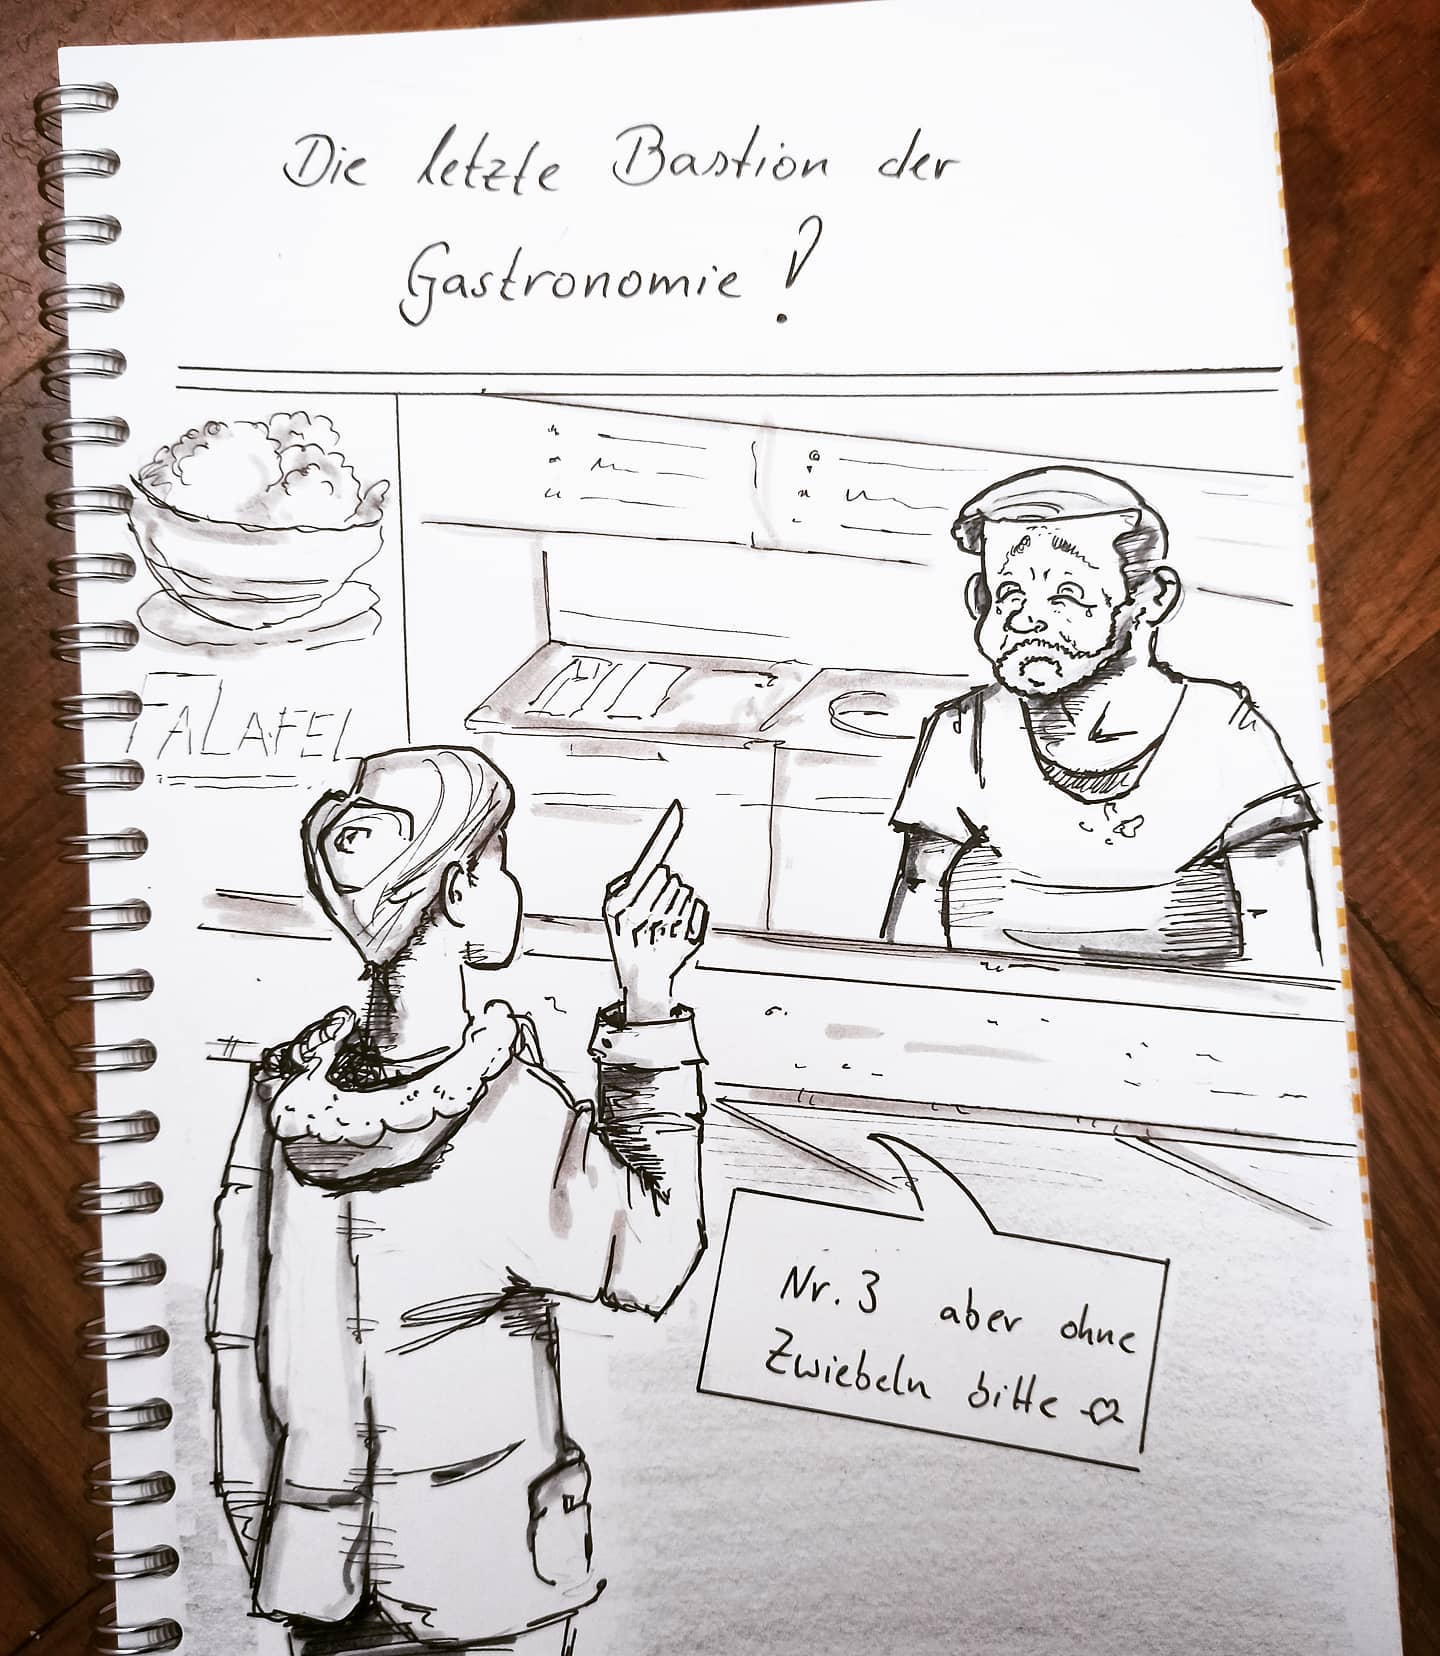 Die letzte Bastion der
Gastronomie!
FALAFEL
Nr. 3 aber ohne
Zwiebeln bitte